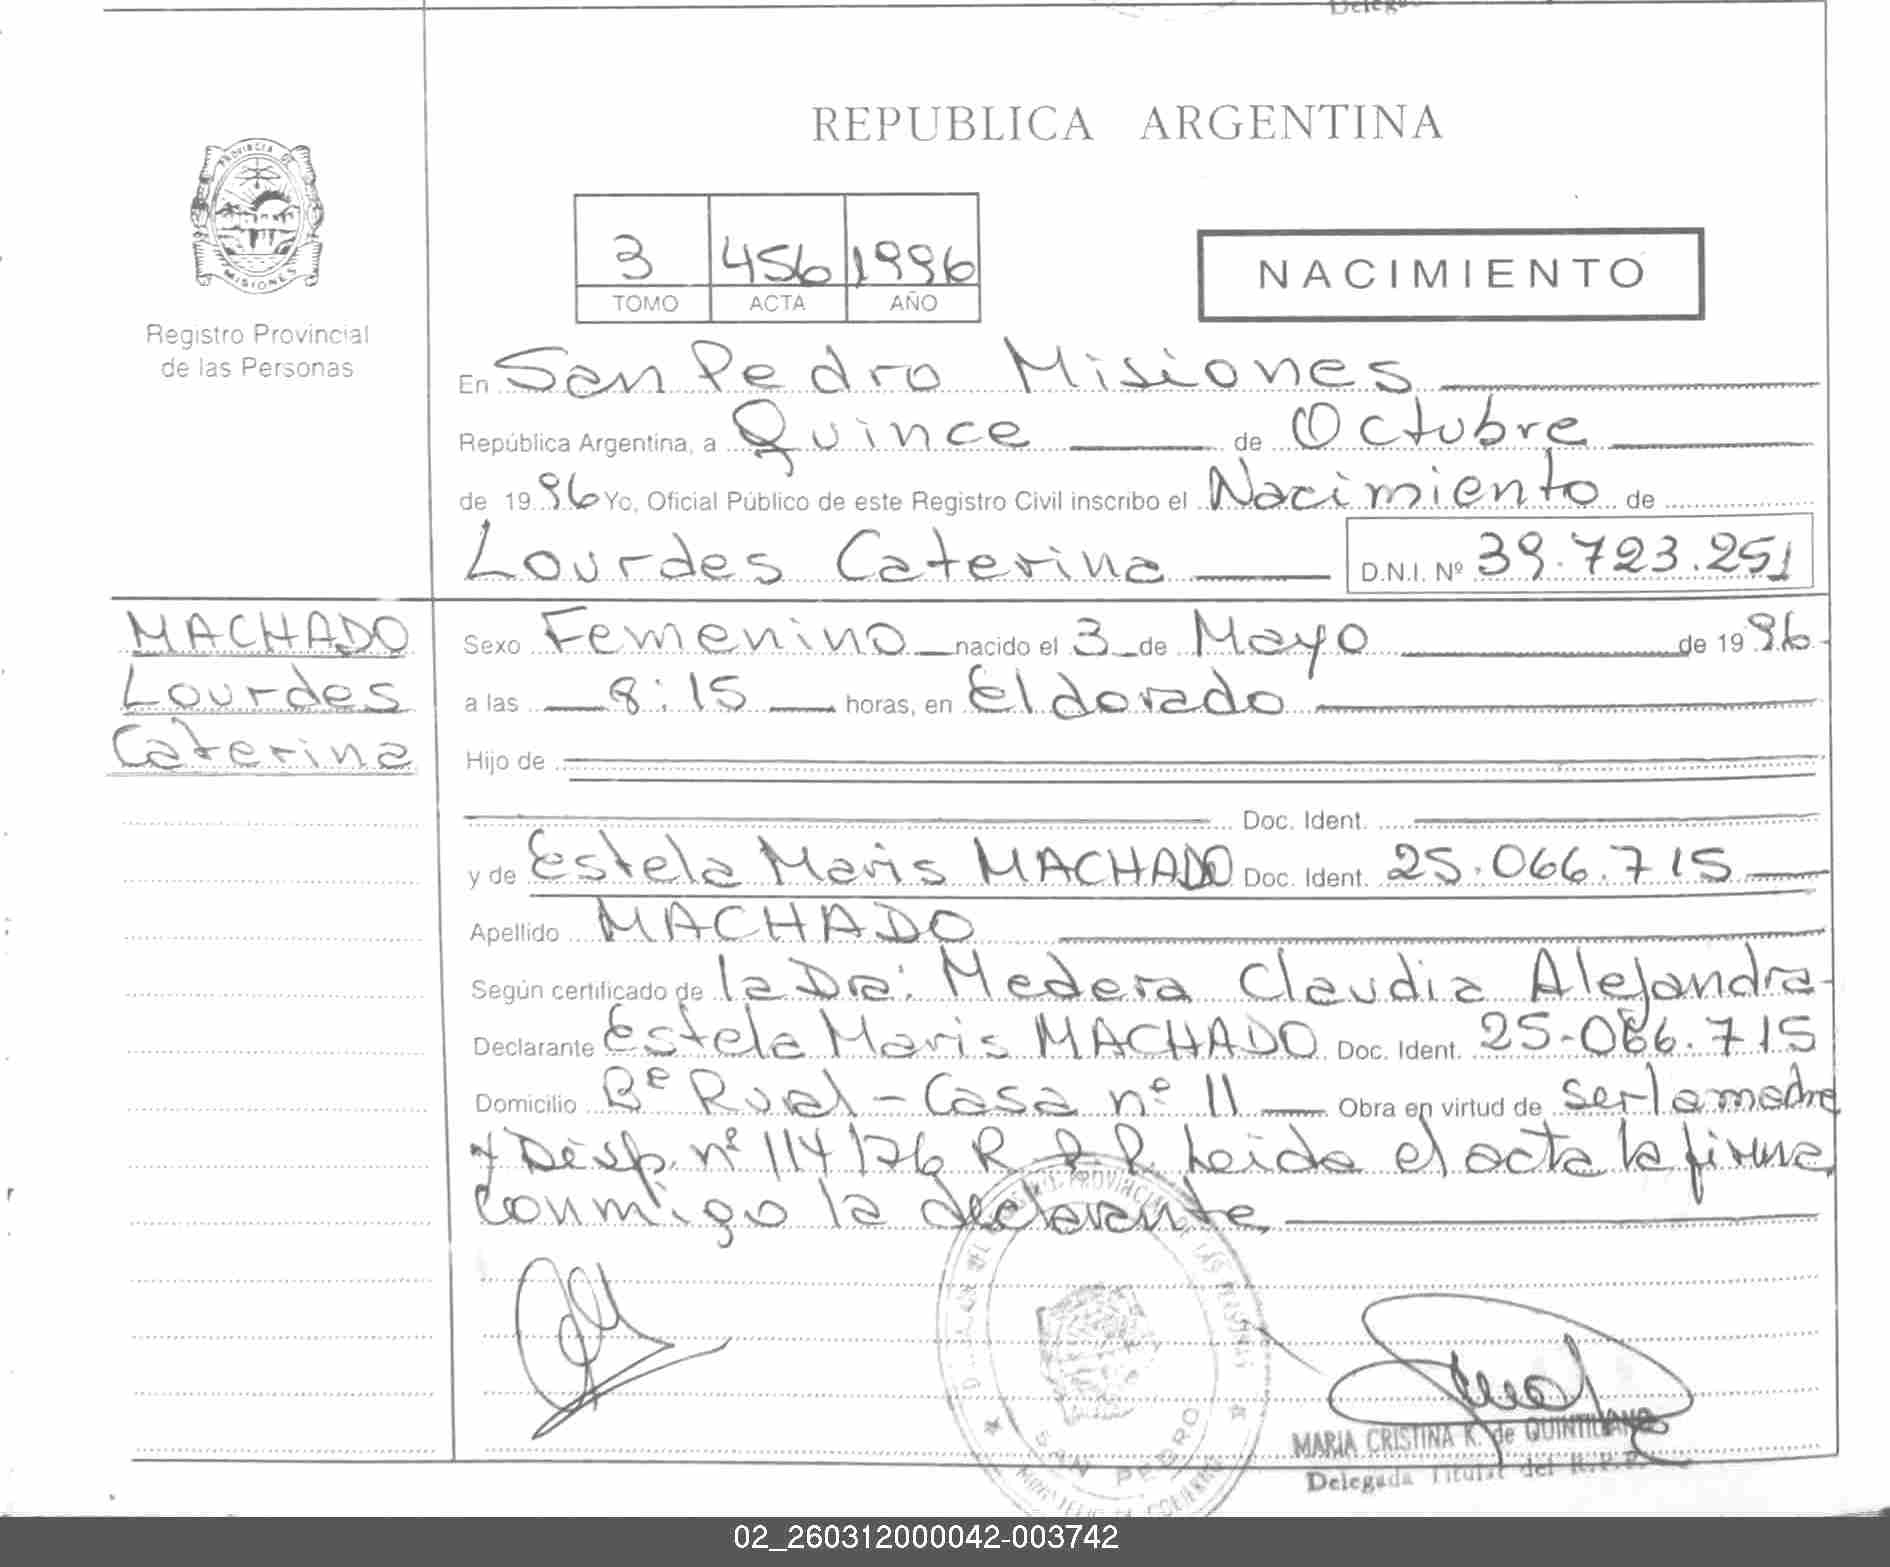 Deleg
REPUBLICA ARGENTINA
PROVINCIA DE
MISIONES
Registro Provincial
de las Personas
3 456 1996
TOMO ACTA AÑO
NACIMIENTO
En San Pedro Misiones
República Argentina, a Quince de Octubre
de 1996 Yo, Oficial Público de este Registro Civil inscribo el Nacimiento de
Lourdes Caterina D.N.I. Nº 39.723.251
MACHADO
Lourdes
Caterina
Sexo Femenino nacido el 3 de Mayo de 1996
a las 8:15 horas, en Eldorado
Hijo de
Doc. Ident.
y de Estela Maris MACHADO Doc. Ident. 25.066.715
Apellido MACHADO
Según certificado de la Dra: Medera Claudia Alejandra
Declarante Estela Maris MACHADO Doc. Ident. 25-066.715
Domicilio Bº Rural - Casa nº 11 Obra en virtud de ser la madre
y Disp. nº 114/76 R.P.P. Leida el acta la firma
conmigo la declarante
PROVINCIAL DE LAS PERSONAS
SAN PEDRO
MARIA CRISTINA K. de QUINTILIANO
Delegada Titular del R.P.P.
02_260312000042-003742